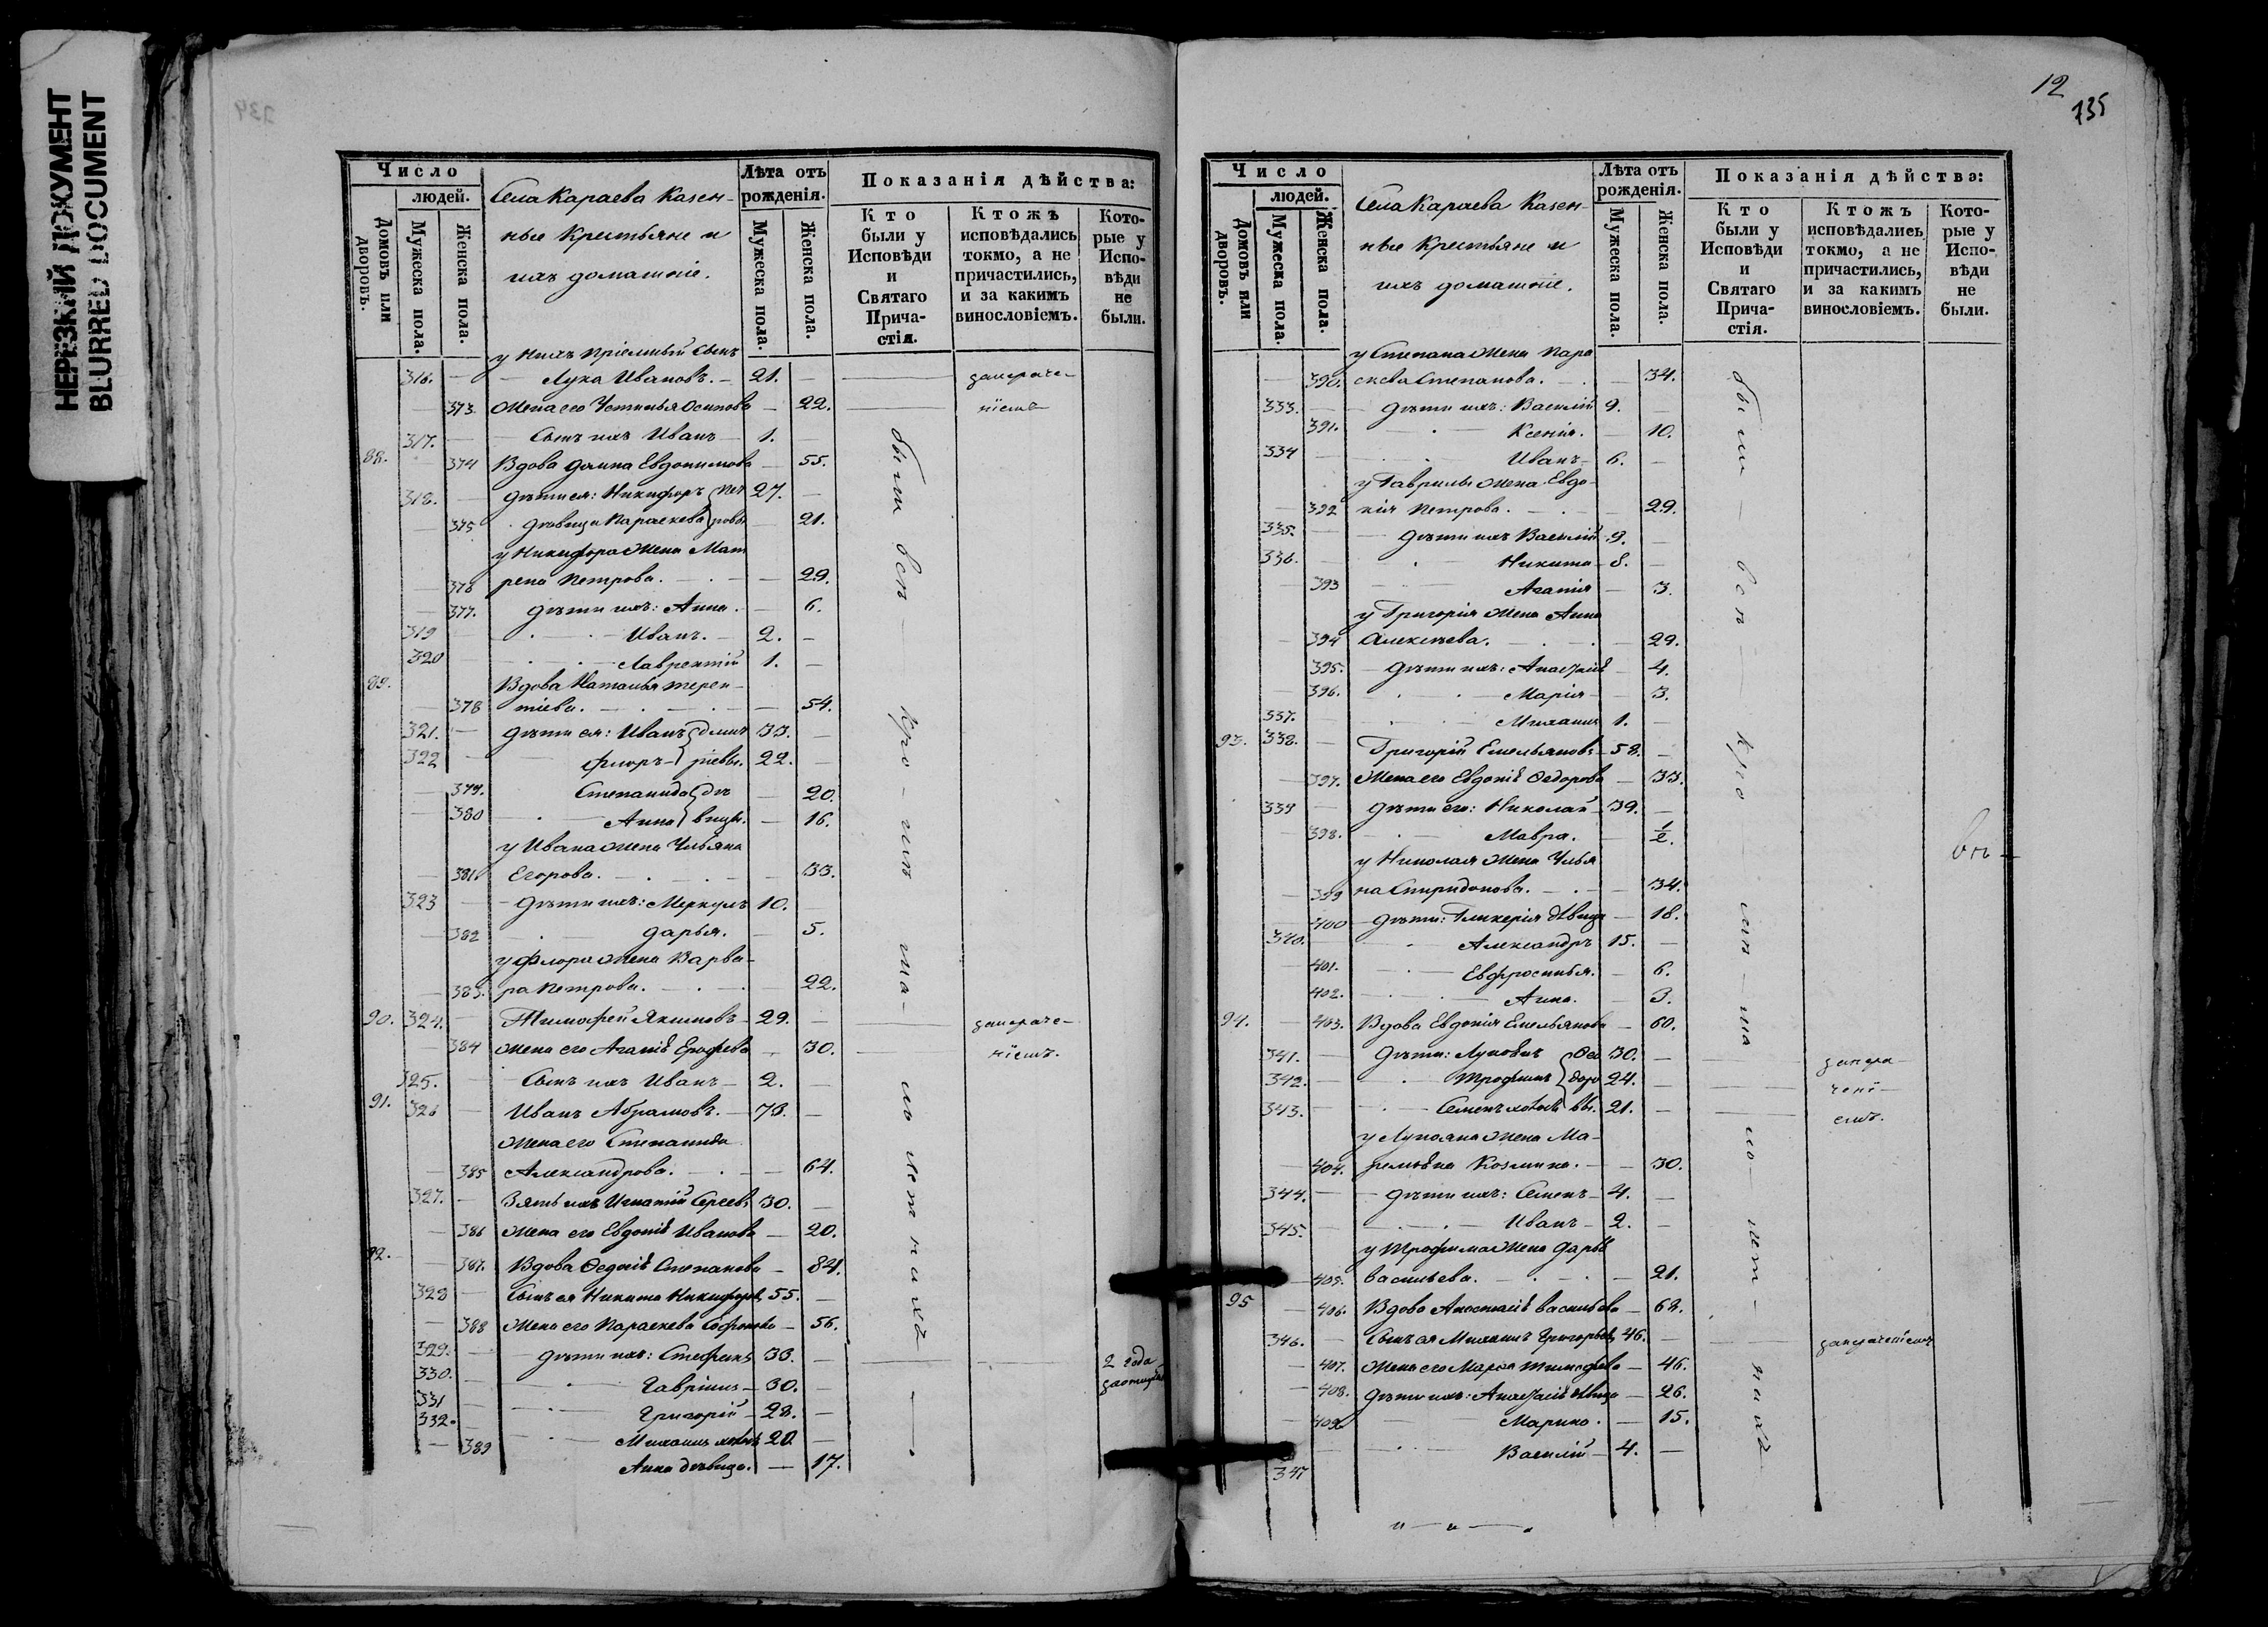 НЕРЕЗКИЙ ДОКУМЕНТ
BLURRED DOCUMENT
734
Число
людей.
Домовъ или дворовъ.
Мужеска пола.
Женска пола.
Села Караева Казен-
ные Крестьяне и
ихъ домашніе.
Лѣта отъ рожденія.
Мужеска пола.
Женска пола.
Показанія дѣйства:
Кто были у Исповѣди и Святаго Прича-стія.
Ктожъ исповѣдались токмо, а не причастились, и за какимъ винословіемъ.
Кото-рые у Испо-вѣди не были.
у нихъ пріемный сынъ
316. Лука Ивановъ. 21. за отраче-
373. Жена его Устинья Осипова 22. ніемъ
317. Сынъ ихъ Иванъ 1.
88. 374 Вдова Домна Евдокимова 55.
318. Дѣти ея: Никифоръ Пет 27.
375 дѣвица Параскева ровы 21.
у Никифора Жена Мат
376 рена Петрова. 29.
377. Дѣти ихъ: Анна. 6.
319 Иванъ. 2.
320 Лаврентій 1.
89. Вдова Наталья Терен-
378 тіева. 54.
321. Дѣти ея: Иванъ Дмит 33.
322 Флоръ ріевы. 22.
379. Степанида дѣ 20.
380 Анна вицы. 16.
у Ивана Жена Ульяна
381 Егорова. 33.
323 Дѣти ихъ: Меркулъ 10.
382 Дарья. 5.
у Флора Жена Варва-
383. ра Петрова. 22.
90. 324. Тимофей Якимовъ 29.
384 Жена его Агапія Ерофева 30. ніемъ.
325. Сынъ ихъ Иванъ 2.
91. 326 Иванъ Абрамовъ. 73.
Жена его Степанида
385 Александрова. 64.
327. Зять ихъ Игнатій Сергеевъ 30.
386 Жена его Евдокія Иванова 20.
92. 387. Вдова Федосія Степанова 84.
328 Сынъ ея Никита Никифоровъ 55.
388 Жена его Параскева Софронова 56.
329. Дѣти ихъ: Стефанъ 33. 2 года
330. Гавріилъ 30.
331 Григорій 28.
332. Михаилъ холостъ 20
389 Анна дѣвица. 17.
были всѣ кро-мѣ ма-лолѣтнихъ
12
735
Число
людей.
Домовъ или дворовъ.
Мужеска пола.
Женска пола.
Села Караева Казен-
ные Крестьяне и
ихъ домашніе.
Лѣта отъ рожденія.
Мужеска пола.
Женска пола.
Показанія дѣйства:
Кто были у Исповѣди и Святаго Прича-стія.
Ктожъ исповѣдались токмо, а не причастились, и за какимъ винословіемъ.
Кото-рые у Испо-вѣди не были.
у Степана Жена Пара
390. скева Степанова. 34.
333. Дѣти ихъ: Василій 9.
391. Ксенія. 10.
334 Иванъ 6.
у Гаврилы Жена Евдо-
392 кія Петрова. 29.
335. Дѣти ихъ Василій 9.
336. Никита 8.
393 Агапія 3.
у Григорія Жена Анна
394 Алексѣева. 29.
395. Дѣти ихъ: Анастасія 4.
396. Марія 3.
337. Михаилъ 1.
93. 338. Григорій Емельяновъ 58.
397. Жена его Евдокія Федорова 33.
339 Дѣти его: Николай 39.
398. Мавра. 1/2.
у Николая Жена Улья
399 на Спиридонова. 34.
400 Дѣти: Гликерія дѣвица 18.
340. Александръ 15.
401. Евфросинья. 6.
402. Анна. 3.
94. 403. Вдова Евдокія Емельянова 60.
341. Дѣти: Лукоянъ Фео 30.
342. Трофимъ доро 24.
343. Семенъ холостъ вы. 21. емъ.
у Лукояна Жена Ма-
404. ремьяна Козмина. 30.
344. Дѣти ихъ: Семенъ 4.
345. Иванъ 2.
у Трофима Жена Дарья
405. Васильева. 21.
95 406. Вдова Анастасія Васильева 68.
346. Сынъ ея Михаилъ Григорьевъ 46.
407. Жена его Марфа Тимофева 46.
408. Дѣти ихъ: Анастасія дѣвица 26.
409 Марина. 15.
347 Василій 4.
были всѣ кро мѣ ма ло лѣт нихъ